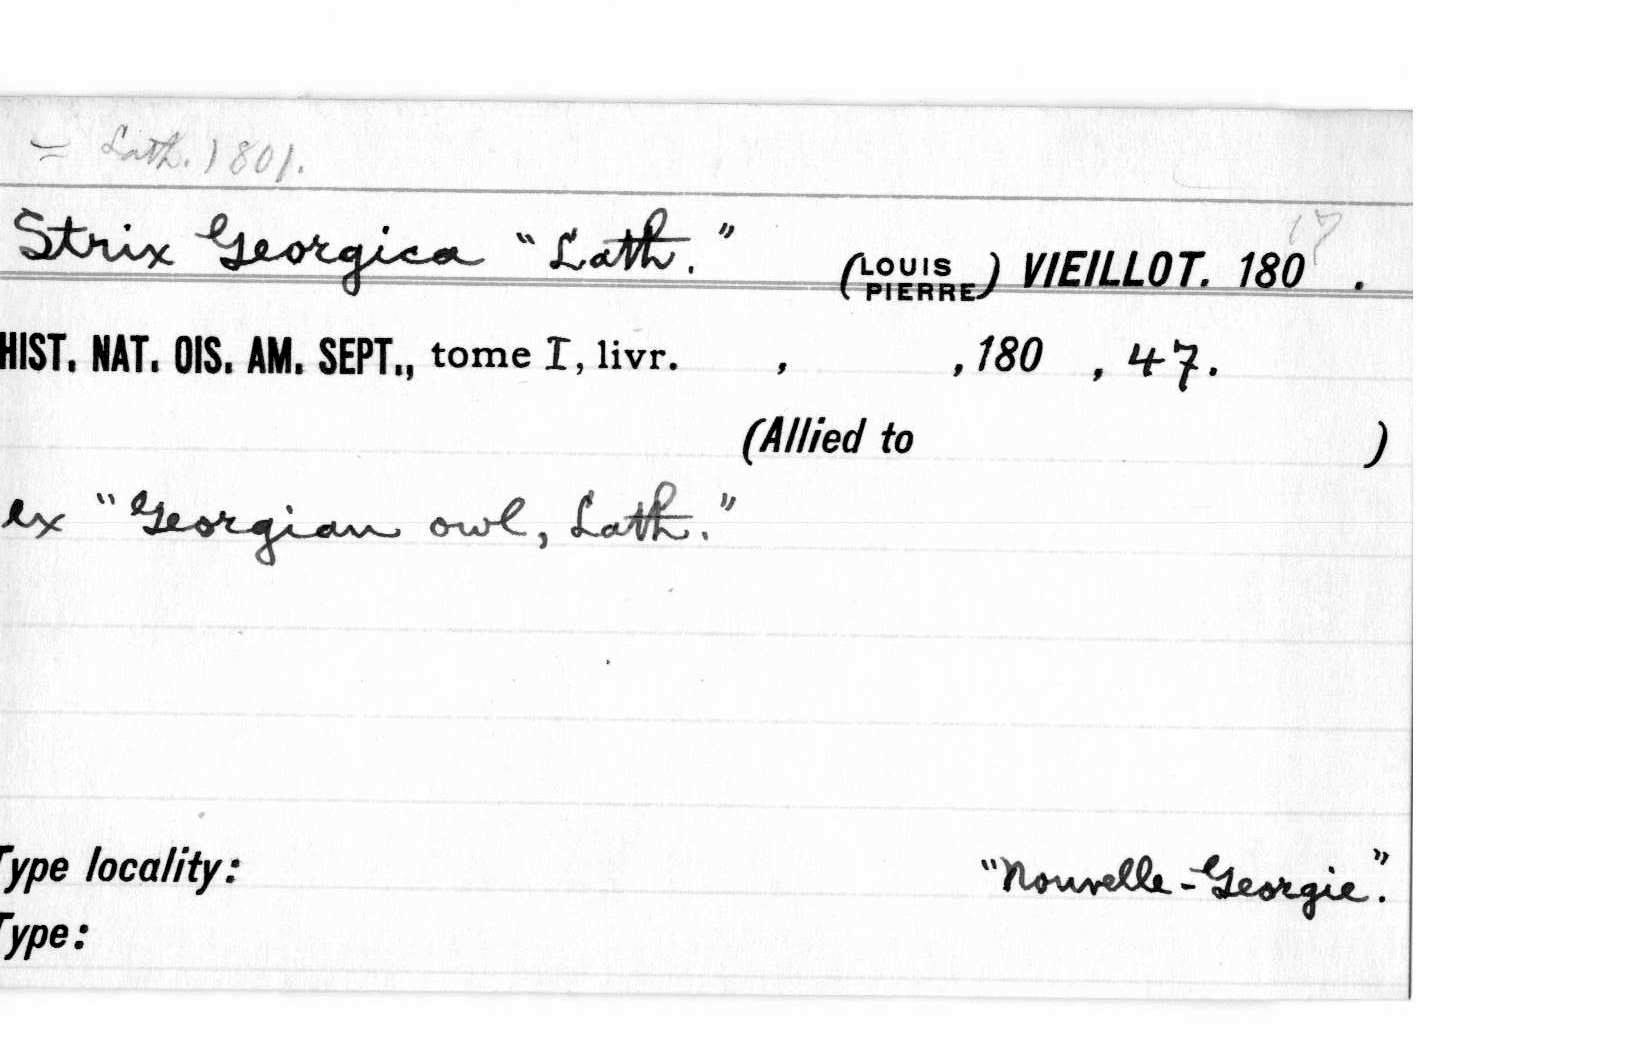 = Lath. 1801.
17
Strix Georgica "Lath." (LOUIS PIERRE) VIEILLOT. 180 .
HIST. NAT. OIS. AM. SEPT., tome I, livr. , , 180 , 47.
(Allied to )
ex "Georgian owl, Lath."
Type locality: "Nouvelle-Georgie".
Type: